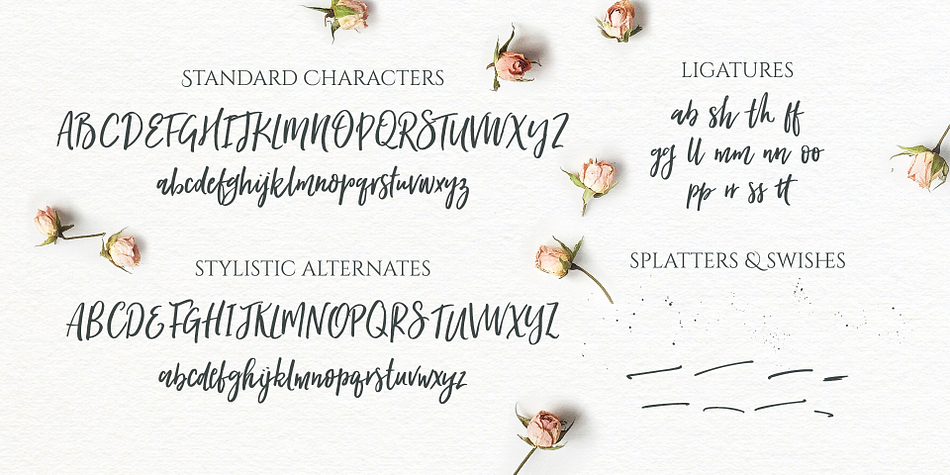 STANDARD CHARACTERS
ABCDEFGHIJKLMNOPQRSTUVWXYZ
abcdefghijklmnopqrstuvwxyz
STYLISTIC ALTERNATES
ABCDEFGHIJKLMNOPQRSTUVWXYZ
abcdefghijklmnopqrstuvwxyz
LIGATURES
ab sh th ff
gg ll mm nn oo
pp rr ss tt
SPLATTERS & SWISHES